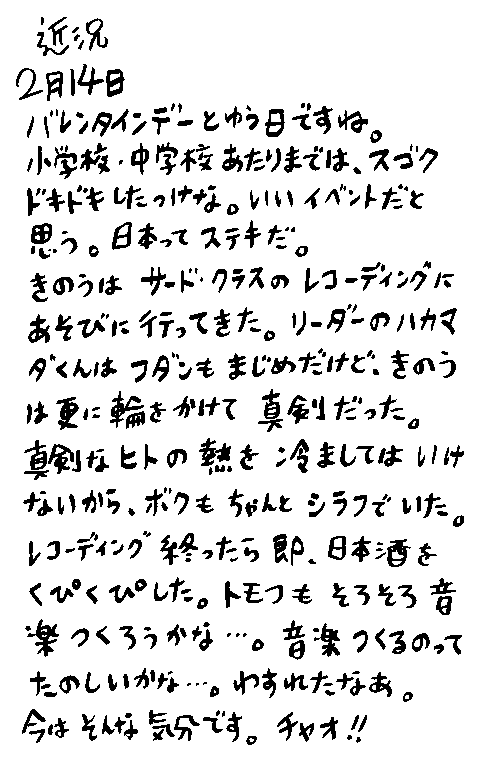 近況
2月14日
バレンタインデーとゆう日ですね。
小学校・中学校あたりまでは、スゴク
ドキドキしたっけな。いいイベントだと
思う。日本ってステキだ。
きのうは サード・クラスのレコーディングに
あそびに行ってきた。リーダーのハカマ
ダくんはフダンもまじめだけど、きのう
は更に輪をかけて真剣だった。
真剣なヒトの熱を冷ましてはいけ
ないから、ボクもちゃんとシラフでいた。
レコーディング終ったら即、日本酒を
くぴくぴした。トモフもそろそろ音
楽つくろうかな…。音楽つくるのって
たのしいかな…。わすれたなあ。
今はそんな気分です。チャオ!!